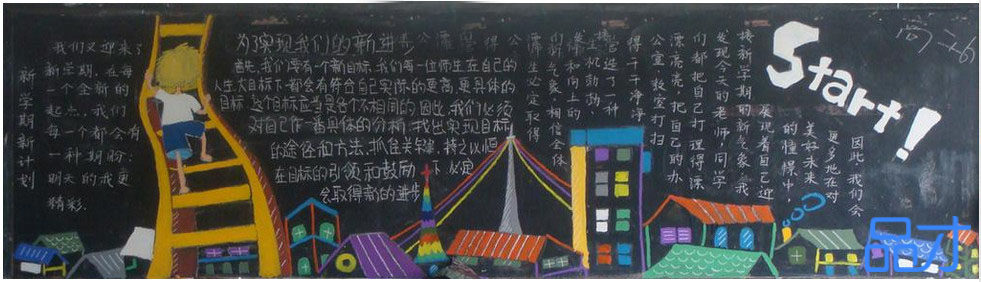 新学期新计划
我们又迎来了
新学期，在每
一个全新的
起点，我们
每一个都会有
一种期盼：
明天的我更
精彩.
为了实现我们的新进
首先,我们得有一个新目标,我们每一位师生在自己的
人生大目标下都会有符合自己实际的更高更具体的
目标 这个目标应当是各个不相同的 因此,我们必须
对自己作一番具体的分析,找出实现目标
的途径和方法,抓住关键,持之以恒
在目标的引领和鼓励下 必定
会取得新的进步
Start!
高二(6)
因此我们会
更多地在对
美好未来
的憧憬中，
展现着自己迎
接新学期的新气象。我
发现今天的老师，同学
们都把自己打理得漂
漂亮亮，把自己的办
公室，教室打扫
得干干净净
营造了一种
生机勃勃
和向上的
新气象，相信全体
师生必定取得
品才